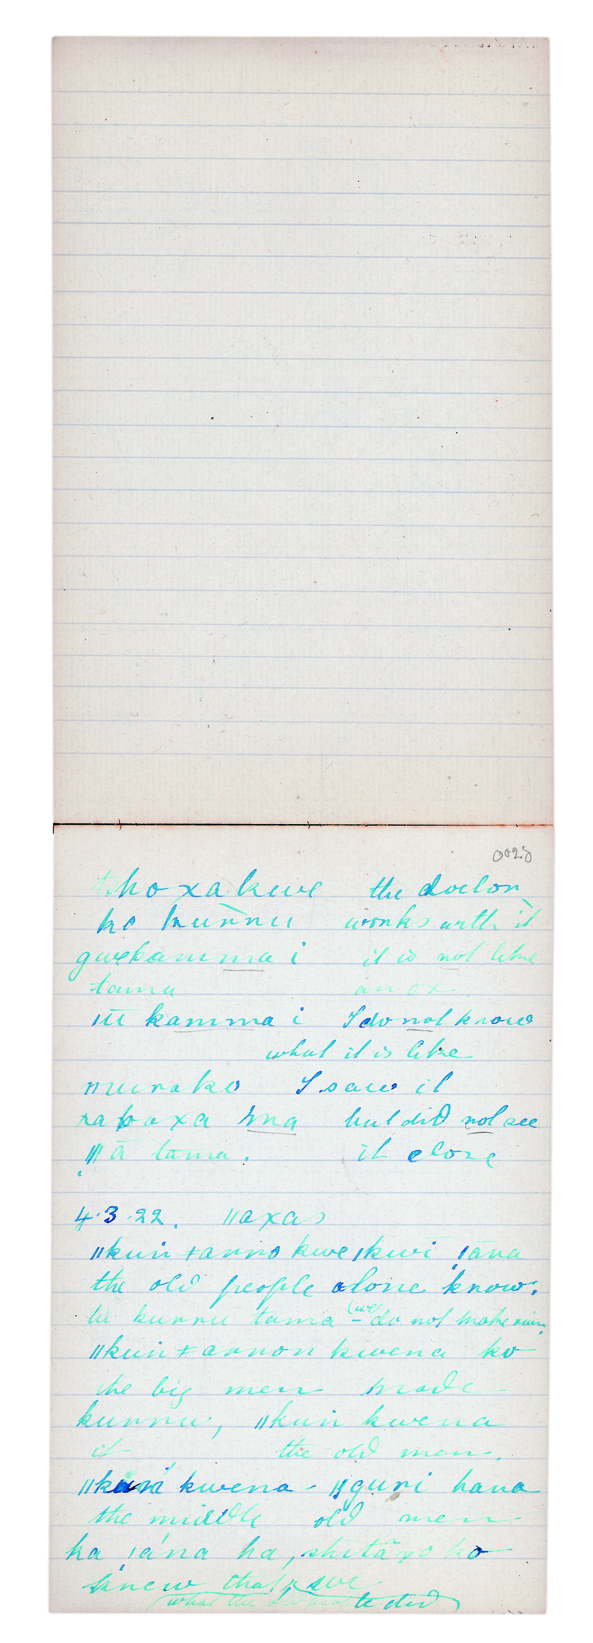 0028
tho xa kwe the doctor
ko kunnu works with it
gwekamma i it is not like
tama an ox.
ııı kamma i I do not know
what it is like
mu ra ko I saw it
ra ko xa ma but did not see
tama. it close
4.3.22. ǁaxas
ǁkuiı ǂanno kwe kwi ǀana
the old people alone know.
kunnu tama (we) do not make rain
ǁkuiı ǂannon kwena ko
the big men made
kunnu, ǁkuiı kwena
it the old men.
kwena - guri hana
the middle old men
ha ǀána ha, ko
knew that we
what the did